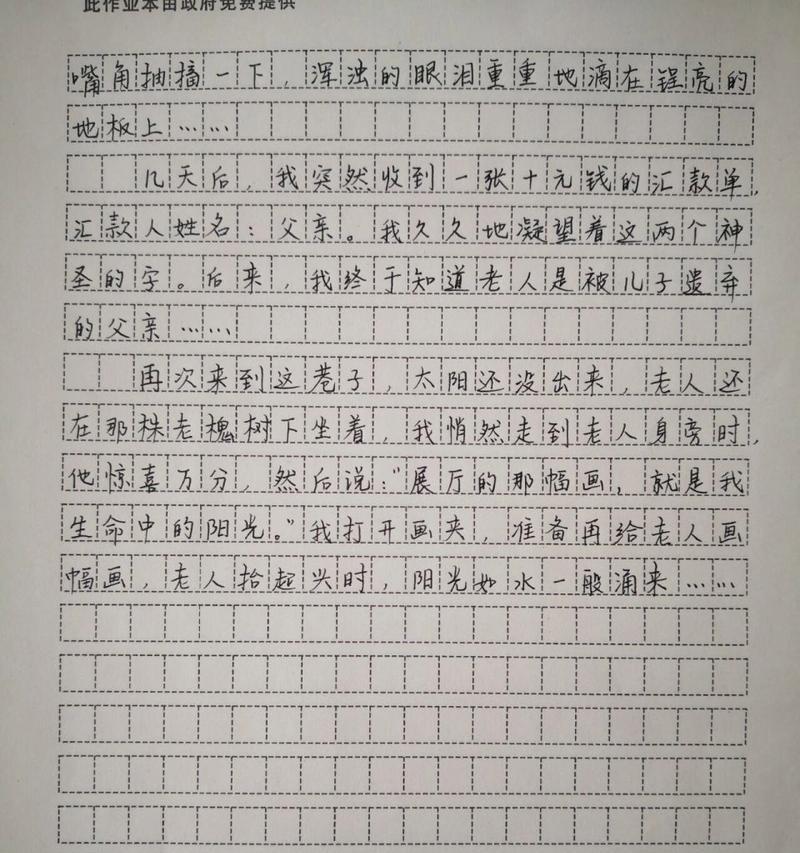 此作业本由政府免费提供
嘴角抽搐一下，浑浊的眼泪重重地滴在锃亮的
地板上……
几天后，我突然收到一张十元钱的汇款单，
汇款人姓名：父亲。我久久地凝望着这两个神
圣的字。后来，我终于知道老人是被儿子遗弃
的父亲……
再次来到这巷子，太阳还没出来，老人还
在那株老槐树下坐着，我悄然走到老人身旁时，
他惊喜万分，然后说：“展厅的那幅画，就是我
生命中的阳光。”我打开画夹，准备再给老人画
幅画，老人抬起头时，阳光如水一般涌来……